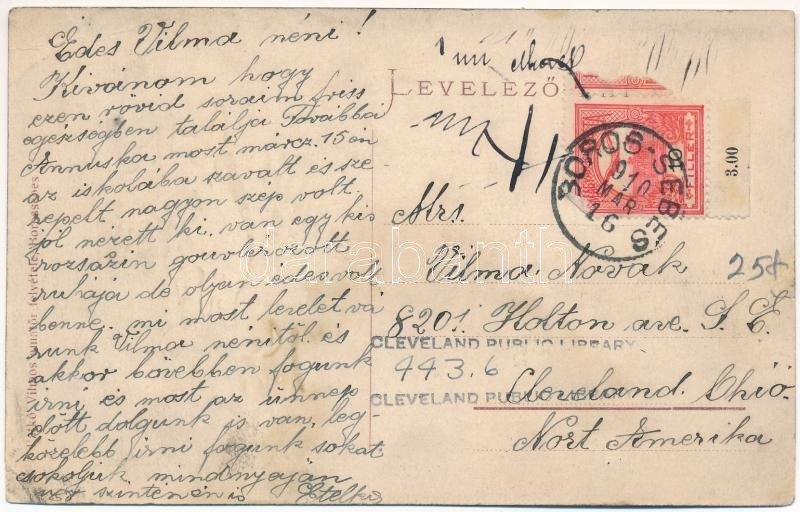 Édes Vilma néni!
Kivánom hogy
ezen rövid soraim friss
egészségben találja Továbbá
Annuska most márcz. 15 én
az iskolába szavalt és sze-
repelt nagyon szép volt.
jól nézett ki, van egy kis
rozsaszin gouvlérozott
ruhája de olyan édes volt
benne, mi most levelet vá
runk Vilma nénitől és
akkor bövebben fogunk
irni, és most az ünnep
elött dolgunk is van, leg-
közelebb irni fogunk sokat
csokoljuk mindnyáján
szinténén is Etelka
LEVELEZŐ
FILLÉR
3.00
BOROS-SEBES
910
MAR
16
S
Mrs.
Vilma Novak
8201. Holton ave. S. E.
CLEVELAND PUBLIC LIBRARY
443.6
Cleveland. Ohió.
CLEVELAND PUBLIC
Nort Amerika
darabanth